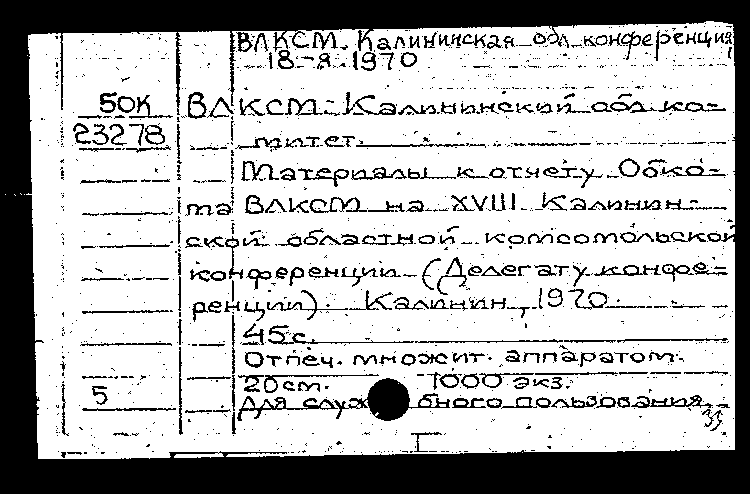 ВЛКСМ. Калининская обл. конференция,
18-я. 1970
50К ВЛКСМ. Калининский обл. ко-
23278 митет.
Материалы к отчету Обко-
ма ВЛКСМ на XVIII Калинин-
ской областной комсомольской
конференции (Делегату конфе-
ренции). Калинин, 1970.
45 с.
Отпеч. множит. аппаратом.
20 см. 1000 экз.
5 Для служебного пользования.
33